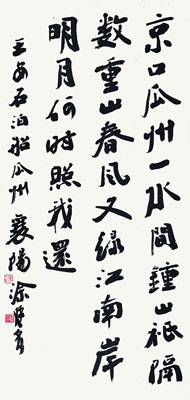 京口瓜州一水間鍾山祇隔
數重山春風又綠江南岸
明月何时照我還
王安石泊船瓜州 襄陽涂